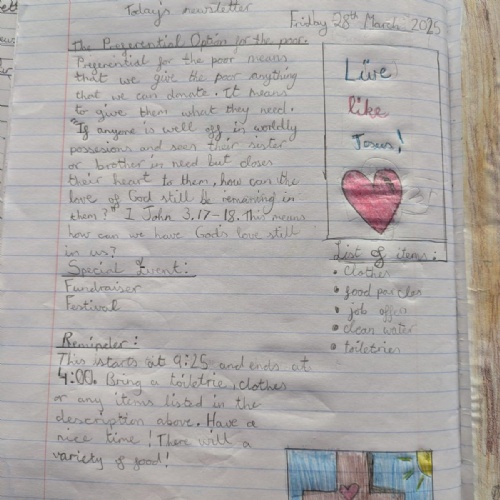 Today's newsletter
Friday 28th March 2025
The Preferential Option for the poor.
Preferential for the poor means
that we give the poor anything
that we can donate. It means
to give them what they need.
"If anyone is well off in worldly
possesions and sees their sister
or brother in need but closes
their heart to them, how can the
love of God still be remaining in
them?" 1 John 3.17-18. This means
how can we have God's love still
in us?
Live
like
Jesus!
Special Event:
Fundraiser
Festival
List of items:
• clothes
• food parcles
• job offers
• clean water
• toiletries
Remineler:
This starts at 9:25 and ends at
4:00. Bring a toiletrie, clothes
or any items listed in the
description above. Have a
nice time! There will a
variety of food!